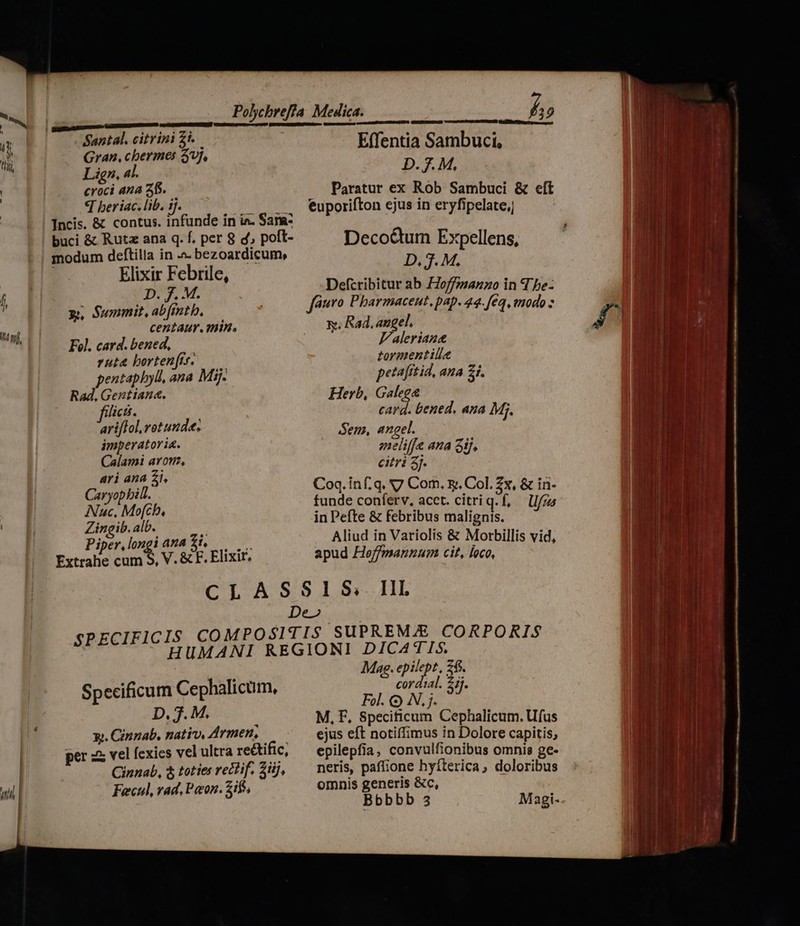 Polychreſta Medica.
Santal. citrini ʒi.
Gran, chermes ʒvj,
Lign, al.
croci ana ʒß.
Theriac. lib. ij.
Incis. & contus. infunde in Sam-
buci & Rutæ ana q. ſ. per 8 d, poſt-
modum deſtilla in bezoardicum,
Elixir Febrile,
D. J. M.
℞, Summit, abſinth.
centaur. min.
Fol. card. bened,
rutæ hortenſis.
pentaphyll, ana Mij.
Rad. Gentianæ.
filicis.
ariſtol, rotundæ.
imperatoriæ.
Calami arom,
ari ana ʒi.
Caryophill.
Nuc, Moſch,
Zingib. alb.
Piper, longi ana ʒi.
Extrahe cum V. & F. Elixir.
Eſſentia Sambuci,
D. J. M,
Paratur ex Rob Sambuci & eſt
euporiſton ejus in eryſipelate,
Decoctum Expellens,
D. J. M.
Deſcribitur ab Hoffmanno in The-
ſauro Pharmaceut. pap. 44. ſeq, modo :
℞. Rad. angel.
Valerianæ
tormentillæ
petaſitid, ana ʒi.
Herb, Galegæ
card. bened. ana Mj.
Sem, angel.
meliſſæ ana ʒij,
citri ʒj.
Coq. in ſ. q. Com. ℞. Col. ʒx, & in-
funde conſerv, acet. citri q. ſ, Uſus
in Peſte & febribus malignis.
Aliud in Variolis & Morbillis vid,
apud Hoffmannum cit, loco,
CLASSIS. III.
De
SPECIFICIS COMPOSITIS SUPREMÆ CORPORIS
HUMANI REGIONI DICATIS.
Specificum Cephalicum,
D. J. M.
℞. Cinnab. nativ, Armen,
per vel ſexies vel ultra rectific,
Cinnab, toties rectif. ʒiij,
Fæcul, rad, Pæon. ʒiß,
Mag. epilept, ʒß.
cordial. ʒij.
Fol. ☉ N, j.
M, F, Specificum Cephalicum. Uſus
ejus eſt notiſſimus in Dolore capitis,
epilepſia, convulſionibus omnis ge-
neris, paſſione hyſterica, doloribus
omnis generis &c,
Bbbbb 3 Magi-